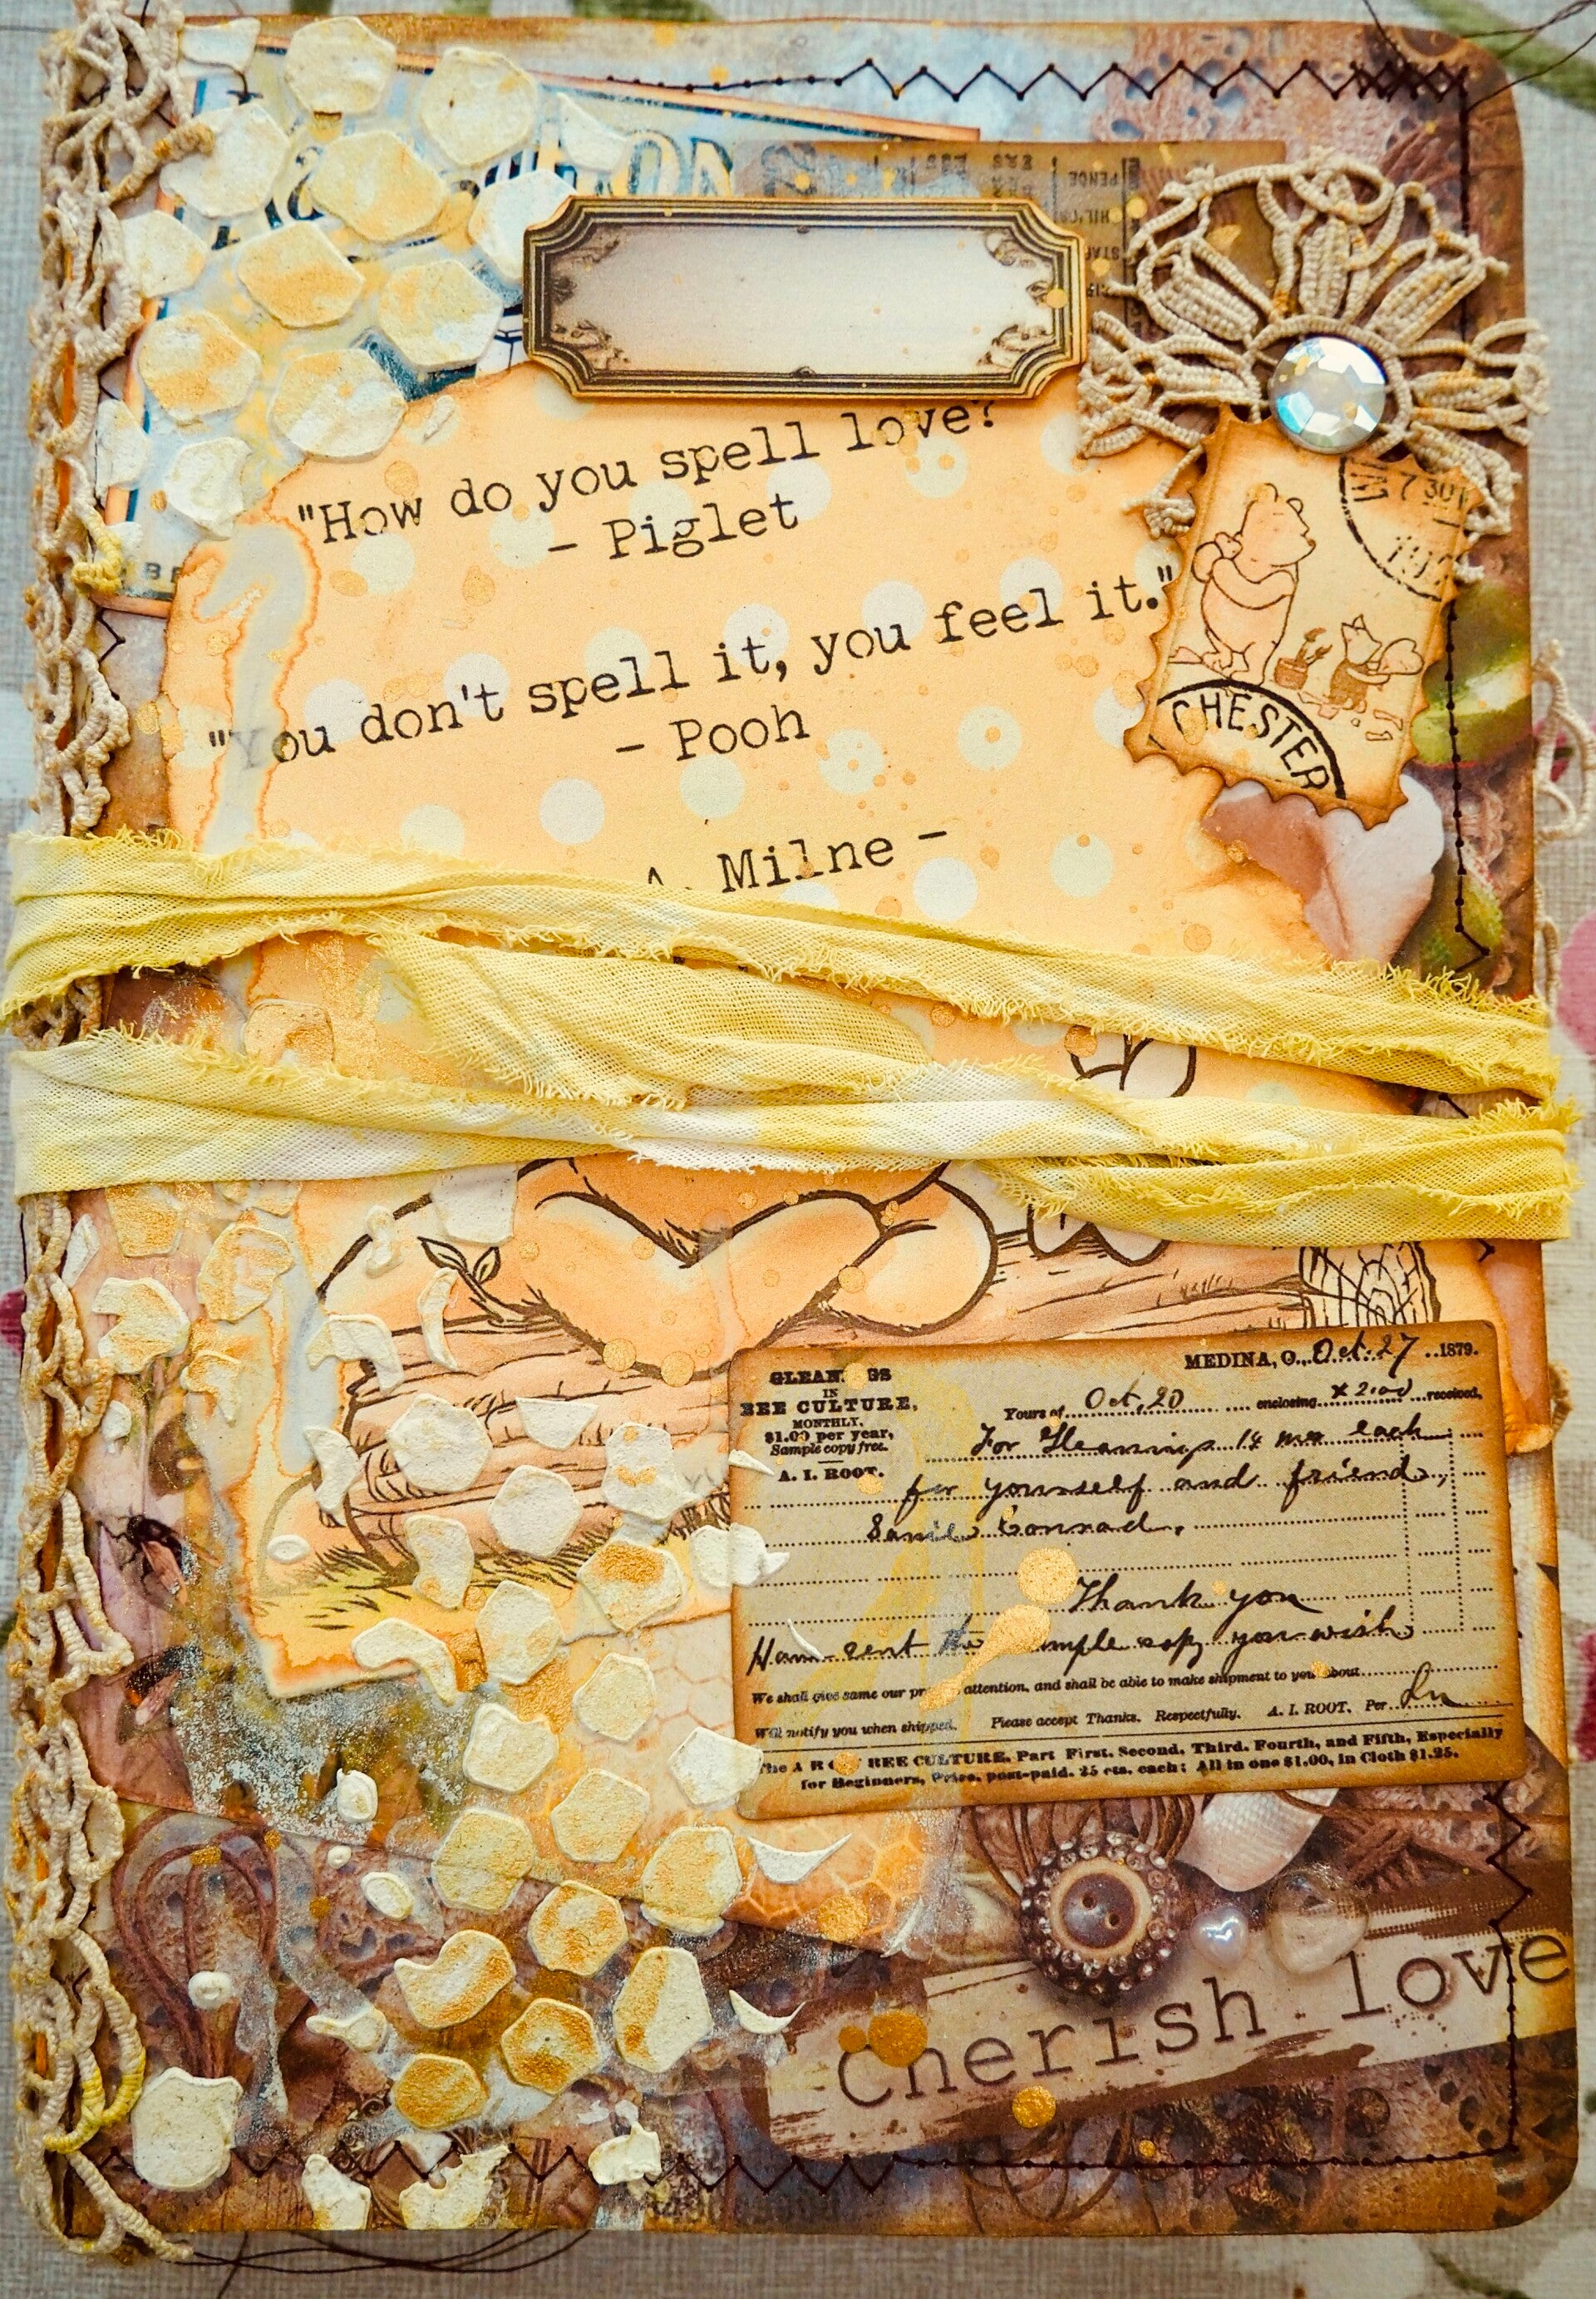 PENCE
"How do you spell love?
- Piglet
"You don't spell it, you feel it."
- Pooh
A. Milne -
7 30
CHESTER
MEDINA, O., Oct. 27 1879.
GLEANINGS
IN
BEE CULTURE,
MONTHLY,
$1.00 per year,
Sample copy free.
A. I. ROOT.
Yours of Oct, 20 enclosing $2.00 received,
For Gleanings 14 mos each
for yourself and friend,
Conrad.
Thank you
Have sent the sample copy you wish
We shall give same our attention, and shall be able to make shipment to you about
Will notify you when shipped. Please accept Thanks. Respectfully. A. I. ROOT. Per
The A B C BEE CULTURE, Part First, Second, Third, Fourth, and Fifth, Especially
for Beginners, Price, post-paid, 25 cts. each; All in one $1.00, in Cloth $1.25.
Cherish love